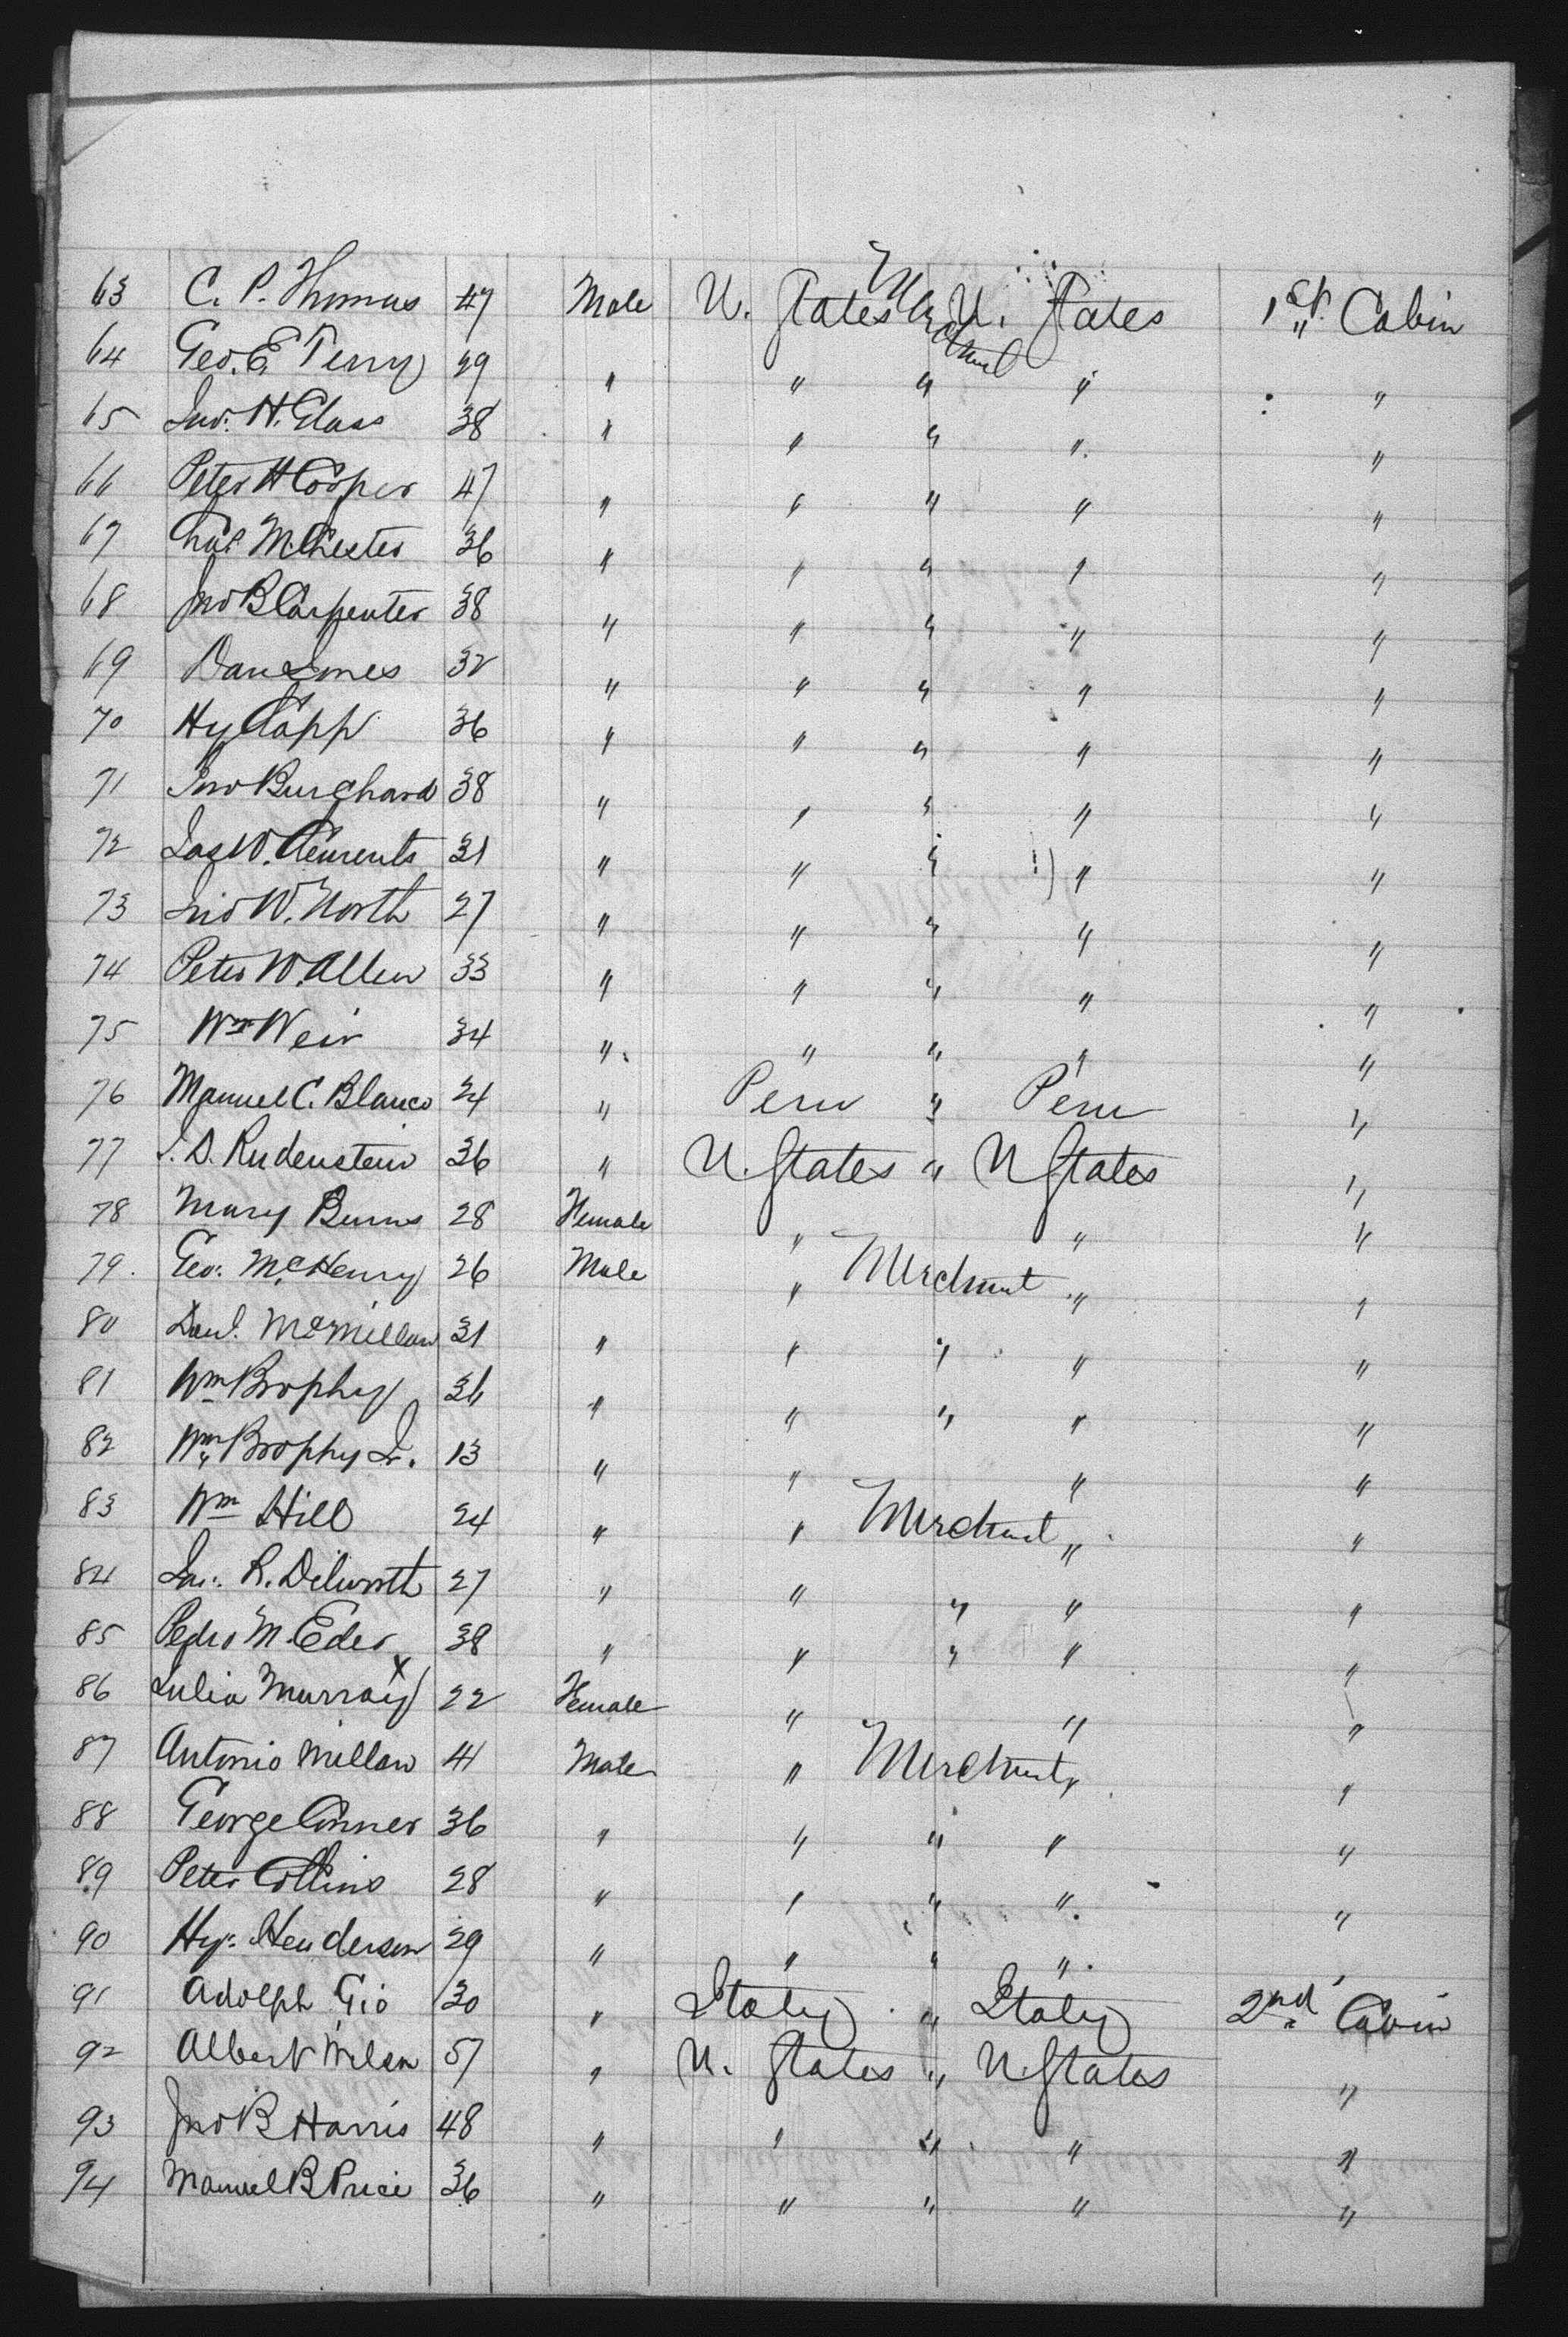 63 C. P. Thomas 47 Male U. States Merchant U. States 1st Cabin
64 Geo. E. Terry 29 " " " " "
65 Jno. H. Glass 38 " " " " "
66 Peter H Cooper 47 " " " " "
67 Chas. M. Chester 36 " " " " "
68 Jno B Carpenter 38 " " " " "
69 Dan Jones 32 " " " " "
70 Hy Capp 36 " " " " "
71 Jno Burchard 38 " " " " "
72 Jas W. Clements 31 " " " " "
73 Jno W. North 27 " " " " "
74 Peter W. Allen 33 " " " " "
75 Wm Weir 34 " " " " "
76 Manuel C. Blanco 24 " Peru " Peru "
77 J. D. Rudenstein 36 " U. States " U States "
78 Mary Burns 28 Female " " "
79. Geo. McHenry 26 Male " Merchant " "
80 Danl. McMillan 31 " " " " "
81 Wm Brophy 36 " " " " "
82 Wm Brophy Jr. 13 " " " "
83 Wm Hill 24 " " Merchant " "
84 R. Dilworth 27 " " " " "
85 Pedro M. Eder 38 " " " " "
86 Julia Murray x 22 Female " " "
87 Antonio Millan 41 Male " Merchant " "
88 George Conner 36 " " " " "
89 Peter Collins 28 " " " " "
90 Hy. Henderson 29 " " " "
91 Adolph Gio 30 " Italy " Italy 2nd Cabin
92 Albert Wilson 57 " U. States " U. States "
93 Jno B Harris 48 " " " " "
94 Manuel B Price 36 " " " " "